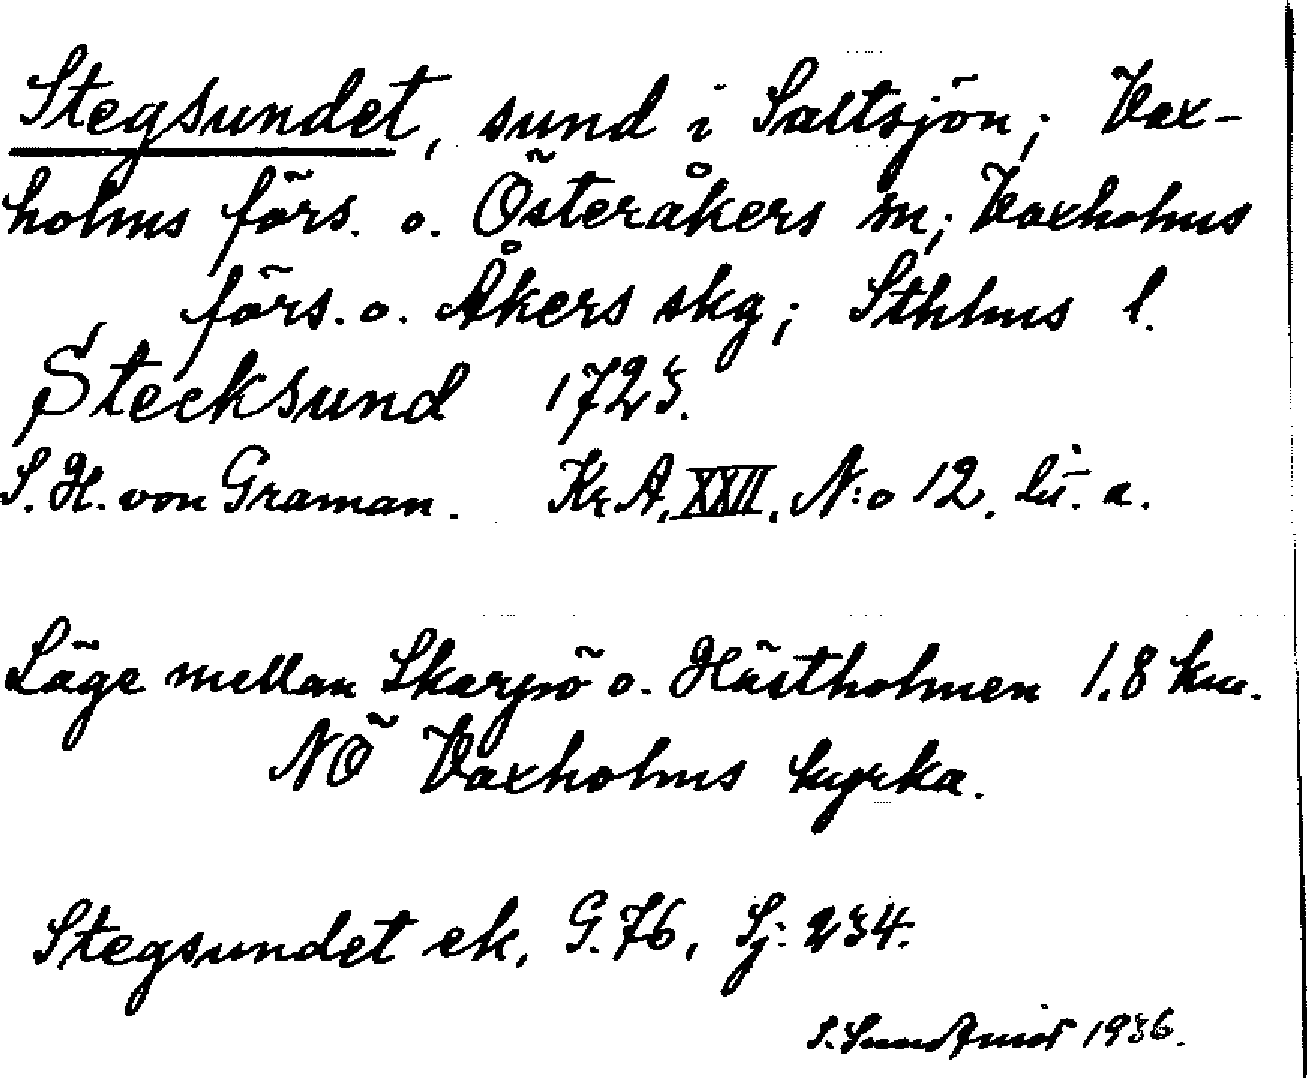 Stegsundet, sund i Saltsjön; Vax-
holms förs. o. Österåkers sn; Vaxholms
förs. o. Åkers skg; Sthlms l.
Stecksund 1723.
S. H. von Graman. Kr. A. XXII. N:o 12. lit. a.
Läge mellan Skarpö o. Hästholmen 1.8 km.
NÖ Vaxholms kyrka.
Stegsundet ek. G. 76, Sj: 234.
S. 1936.